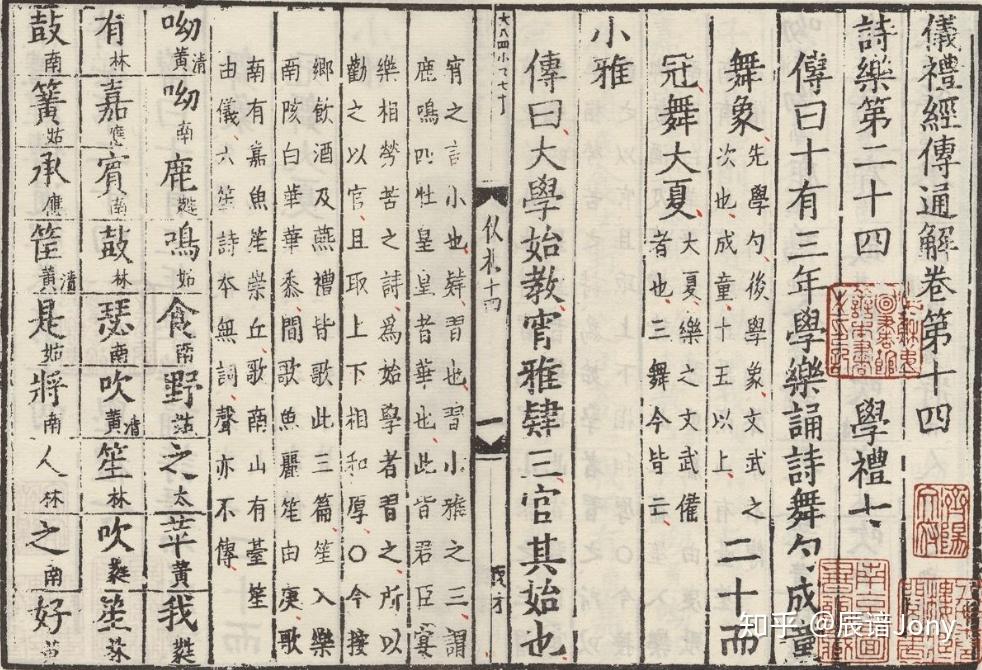 儀禮經傳通解卷第十四
詩樂第二十四 學禮七
傳曰十有三年學樂誦詩舞勺成童
舞象先學勺後學象文武之次也成童十五以上二十而
冠舞大夏大夏樂之文武備者也三舞今皆亡
小雅
傳曰大學始教宵雅肄三官其始也
仪礼十四
一
茂才
宵之言小也肄習也習小雅之三謂
鹿鳴四牡皇皇者華也此皆君臣宴
樂相勞苦之詩爲始學者習之所以
勸之以官且取上下相和厚○今按
鄉飲酒及燕禮皆歌此三篇笙入樂
南陔白華華黍間歌魚麗笙由庚歌
南有嘉魚笙崇丘歌南山有臺笙
由儀六笙詩本無詞聲亦不傳
呦清黃呦南鹿蕤鳴姑食南野姑之太苹黃我蕤
有林嘉應賓南鼓林瑟南吹清黃笙林吹蕤笙林
鼓南簧姑承應筐清黃是姑將南人林之南好姑
知乎 @辰谱Jony